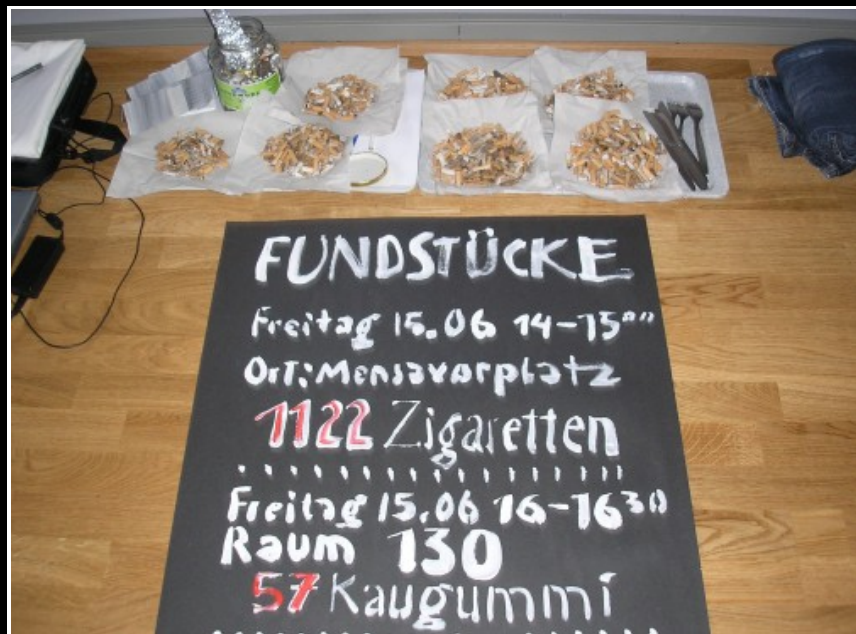 FUNDSTÜCKE
Freitag 15.06 14-15⁰⁰
Ort: Mensavorplatz
1122 Zigaretten
Freitag 15.06 16-16³⁰
Raum 130
57 Kaugummi